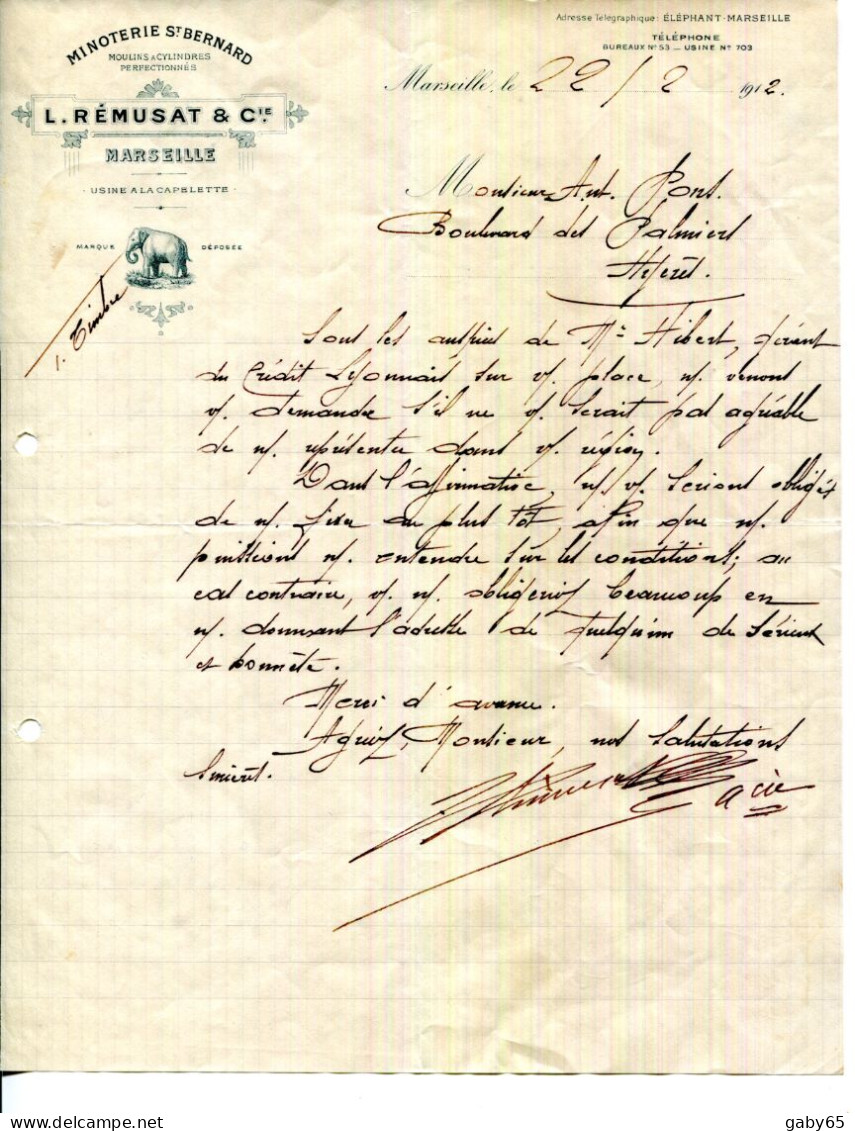 MINOTERIE ST BERNARD
MOULINS A CYLINDRES
PERFECTIONNÉS
L. RÉMUSAT & CIE.
MARSEILLE
USINE A LA CAPELETTE
MARQUE DÉPOSÉE
1. Timbre
Adresse Télégraphique: ÉLÉPHANT-MARSEILLE
TÉLÉPHONE
BUREAUX No 53 — USINE No 703
Marseille, le 22/2 1912.
Monsieur Ant. Pons.
Boulevard des Palmiers
Hyères.
Sous les auspices de Mr. Hibert, gérant
du Crédit Lyonnais sur v/. place, n/. venons
v/. demander s'il ne v/. serait pas agréable
de n/. représenter dans v/. région.
Dans l'affirmative, n/. v/. serions obligés
de n/. fixer au plus tôt, afin que n/.
puissions n/. entendre sur les conditions; au
cas contraire, v/. n/. obligeriez beaucoup en
n/. donnant l'adresse de quelqu'un de sérieux
et honnête.
Merci d'avance.
Agréez, Monsieur, nos salutations
sincères.
& cie
gaby65